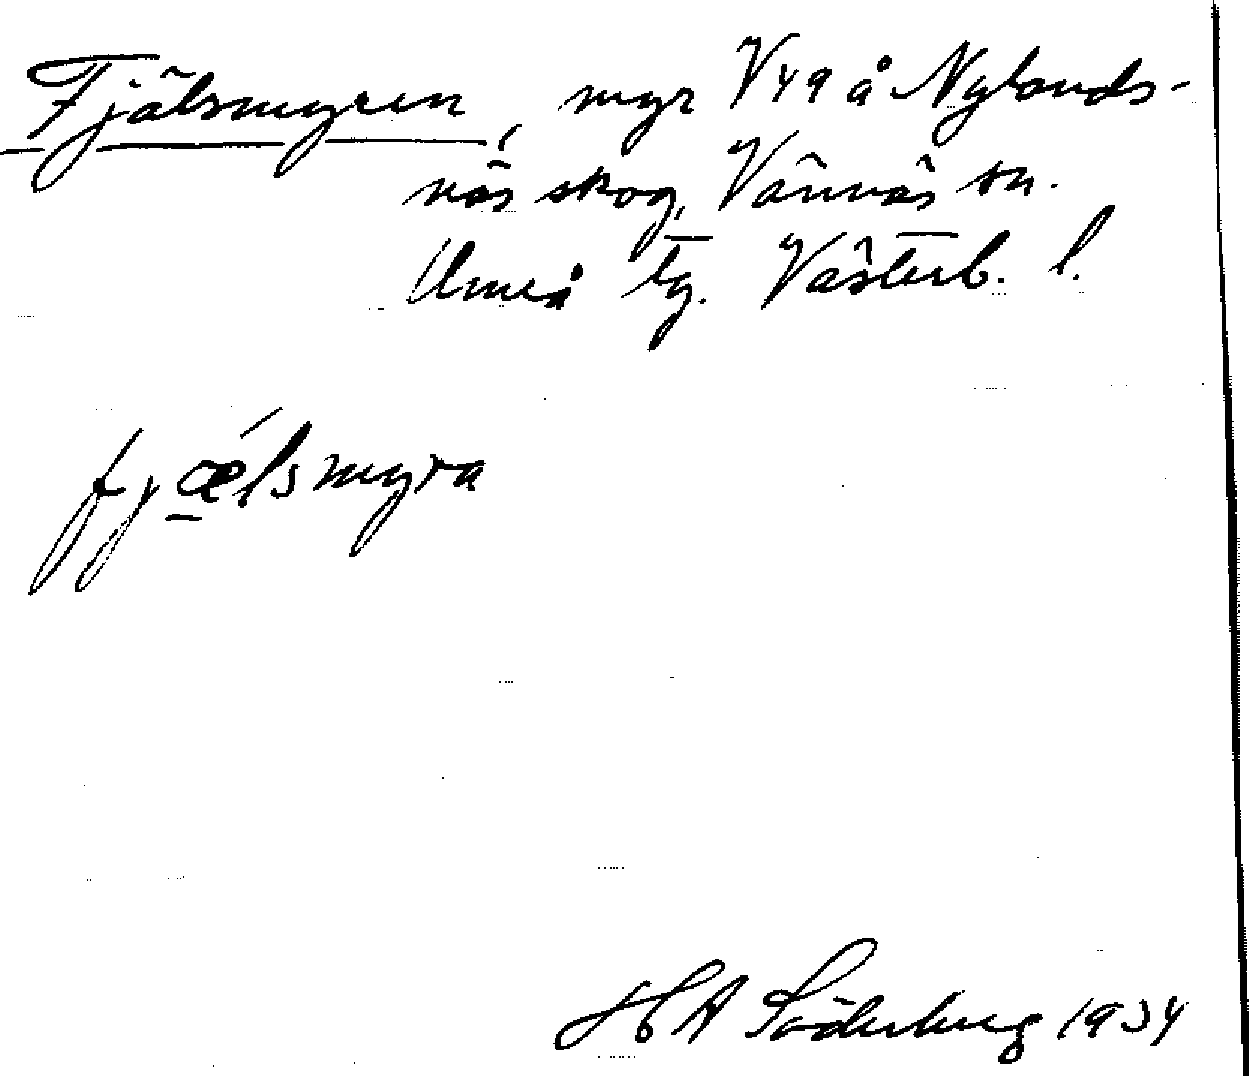 Fjälsmyren, myr V49 å Nylands-
näs skog, Vännäs sn.
Umeå tg. Västerb. l.
fjæ̱lsmyra
H A Söderberg 1934